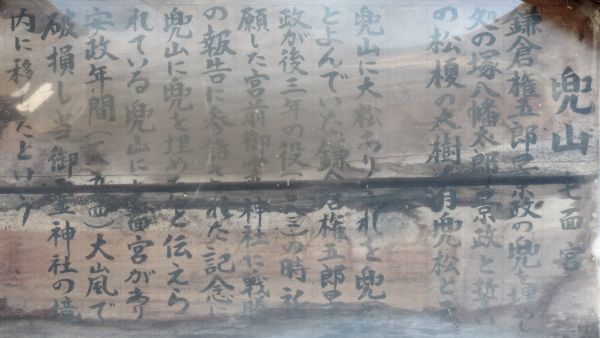 兜山 七面宮
鎌倉権五郎景政の兜を埋めし
処の塚八幡太郎 景政と誓い
の松榎の大樹 兜松と云
兜山に大松あり これを兜
とよんでいた 鎌倉権五郎景
政が後三年の役 の時 祈
願した宮前御霊神社に戦勝
の報告に参詣された記念に
兜山に兜を埋め と伝えら
れている 兜山に 面宮があり
安政年間 大嵐で
破損し当御霊神社の境
内に移 たという